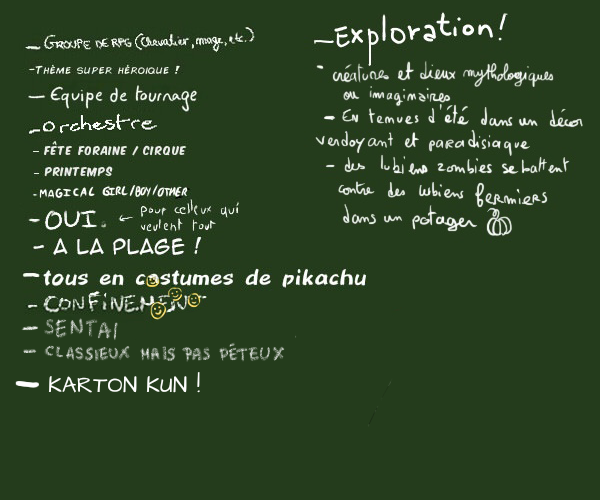 - GROUPE DE RPG (Chevalier, mage, etc.)
-THÈME SUPER HÉROIQUE !
- Equipe de tournage
-orchestre
- FÊTE FORAINE / CIRQUE
- PRINTEMPS
-MAGICAL GIRL/BOY/OTHER
- OUI. ← pour celleux qui
veulent tout
- A LA PLAGE !
- tous en costumes de pikachu
- CONFINEMENT
- SENTAI
- CLASSIEUX MAIS PAS PÉTEUX
- KARTON KUN !
-Exploration!
- créatures et dieux mythologiques
ou imaginaires
- En tenues d'été dans un décor
verdoyant et paradisiaque
- des lubiens zombies se battent
contre des lubiens fermiers
dans un potager